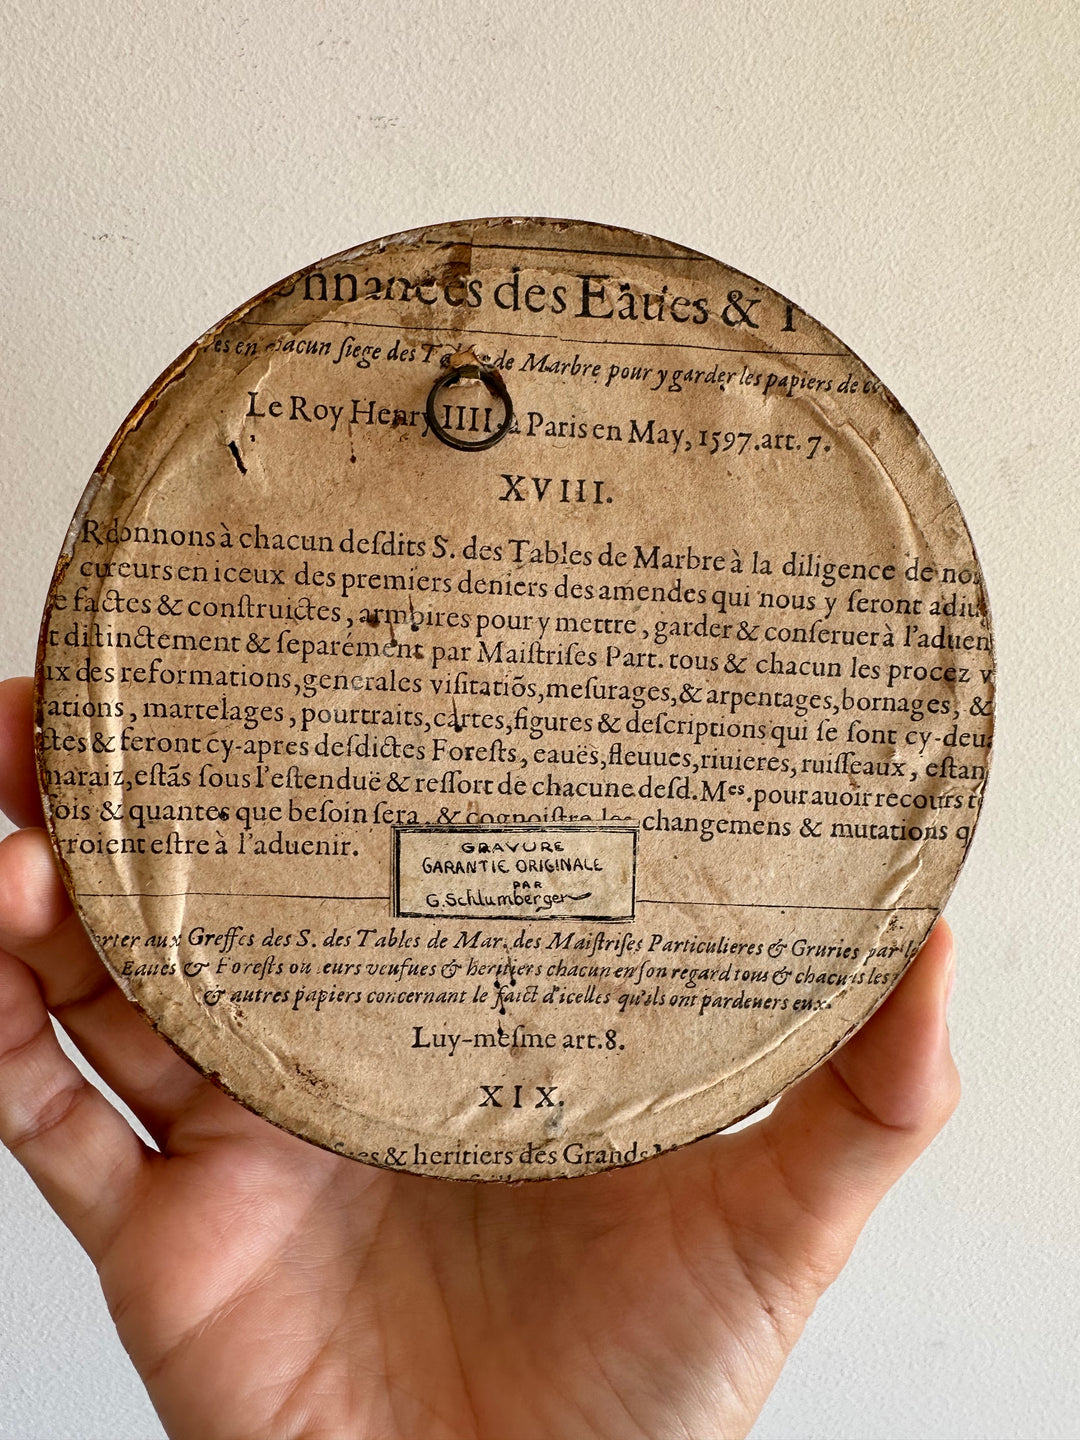 onnances des Eaües &
es en chacun ſiege des Tables de Marbre pour y garder les papiers de
Le Roy Henry IIII. à Paris en May, 1597.art. 7.
XVIII.
Rdonnons à chacun deſdits S. des Tables de Marbre à la diligence de nos
cureurs en iceux des premiers deniers des amendes qui nous y ſeront adiu
e factes & conſtruictes, armoires pour y mettre, garder & conſeruer à l'aduen
t diſtinctement & ſeparémẽnt par Maiſtriſes Part. tous & chacun les procez v
ux des reformations, generales viſitatiõs, meſurages, & arpentages, bornages, &
ations, martelages, pourtraits, cartes, figures & deſcriptions qui ſe ſont cy-deu
ctes & feront cy-apres deſdictes Foreſts, eauës, fleuues, riuieres, ruiſſeaux, eſtan
maraiz, eſtãs ſous l'eſtenduë & reſſort de chacune deſd. Mes. pour auoir recours t
fois & quantes que beſoin ſera, & cognoiſtre les changemens & mutations q
rroient eſtre à l'aduenir.
GRAVURE
GARANTIE ORIGINALE
PAR
G. Schlumberger
orter aux Greffes des S. des Tables de Mar. des Maiſtriſes Particulieres & Gruries par
Eaues & Foreſts ou leurs veufues & heritiers chacun en ſon regard tous & chacuns les
& autres papiers concernant le faict d'icelles qu'ils ont pardeuers eux.
Luy-meſme art. 8.
XIX.
ues & heritiers des Grands M